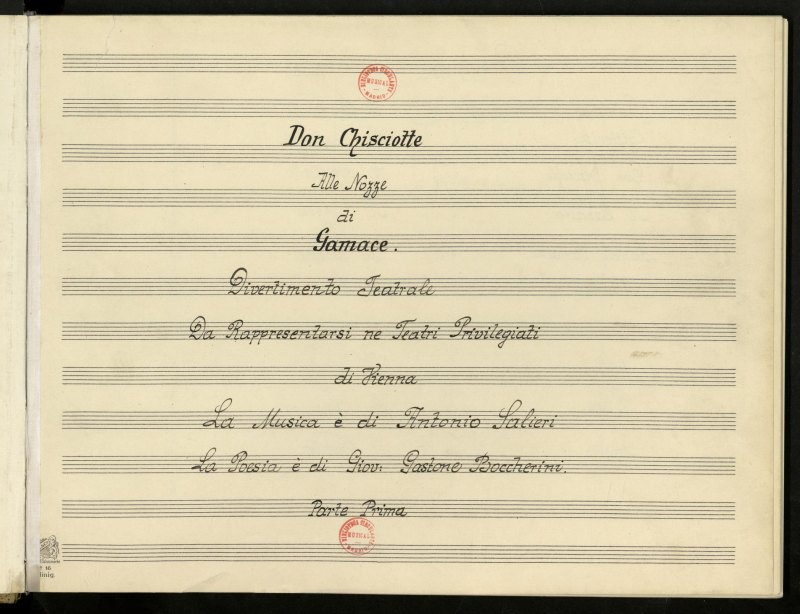 BIBLIOTECA CIRCULANTE
MUSICAL
MADRID
Don Chisciotte
Alle Nozze
di
Gamace.
Divertimento Teatrale
Da Rappresentarsi ne Teatri Privilegiati
di Vienna
La Musica è di Antonio Salieri
La Poesia è di Giov: Gastone Boccherini.
Parte Prima
BIBLIOTECA CIRCULANTE
MUSICAL
MADRID
16
linig.